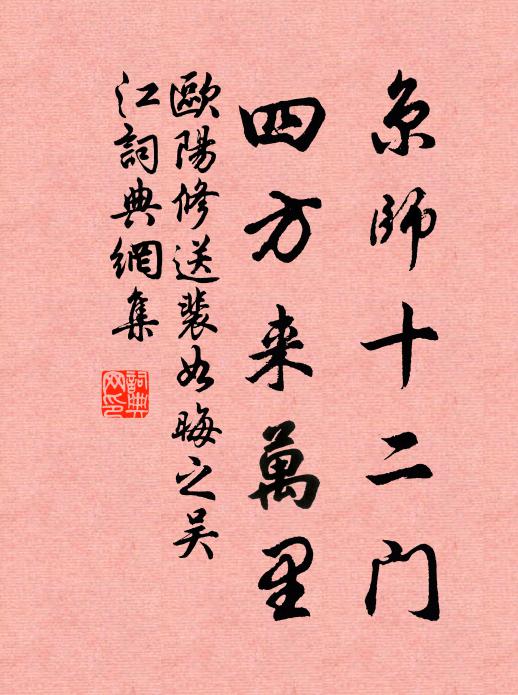 京師十二门
四方来萬里
歐陽修送裴如晦之吴
江詞典網集
詞典
网印